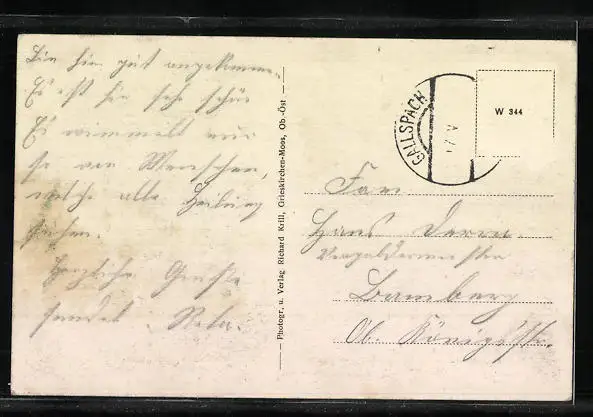 Bin hier gut angekommen.
Es ist hier sehr schön
Es wimmelt nur
so von Menschen,
welche alle Heilung
suchen.
Herzliche Grüße
sendet Reta.
Photogr. u. Verlag Richard Krill, Grieskirchen-Moos, Ob.-Öst
GALLSPACH
W 344
Hans
Vergoldermeister
Bamberg
Ob. Königstr.